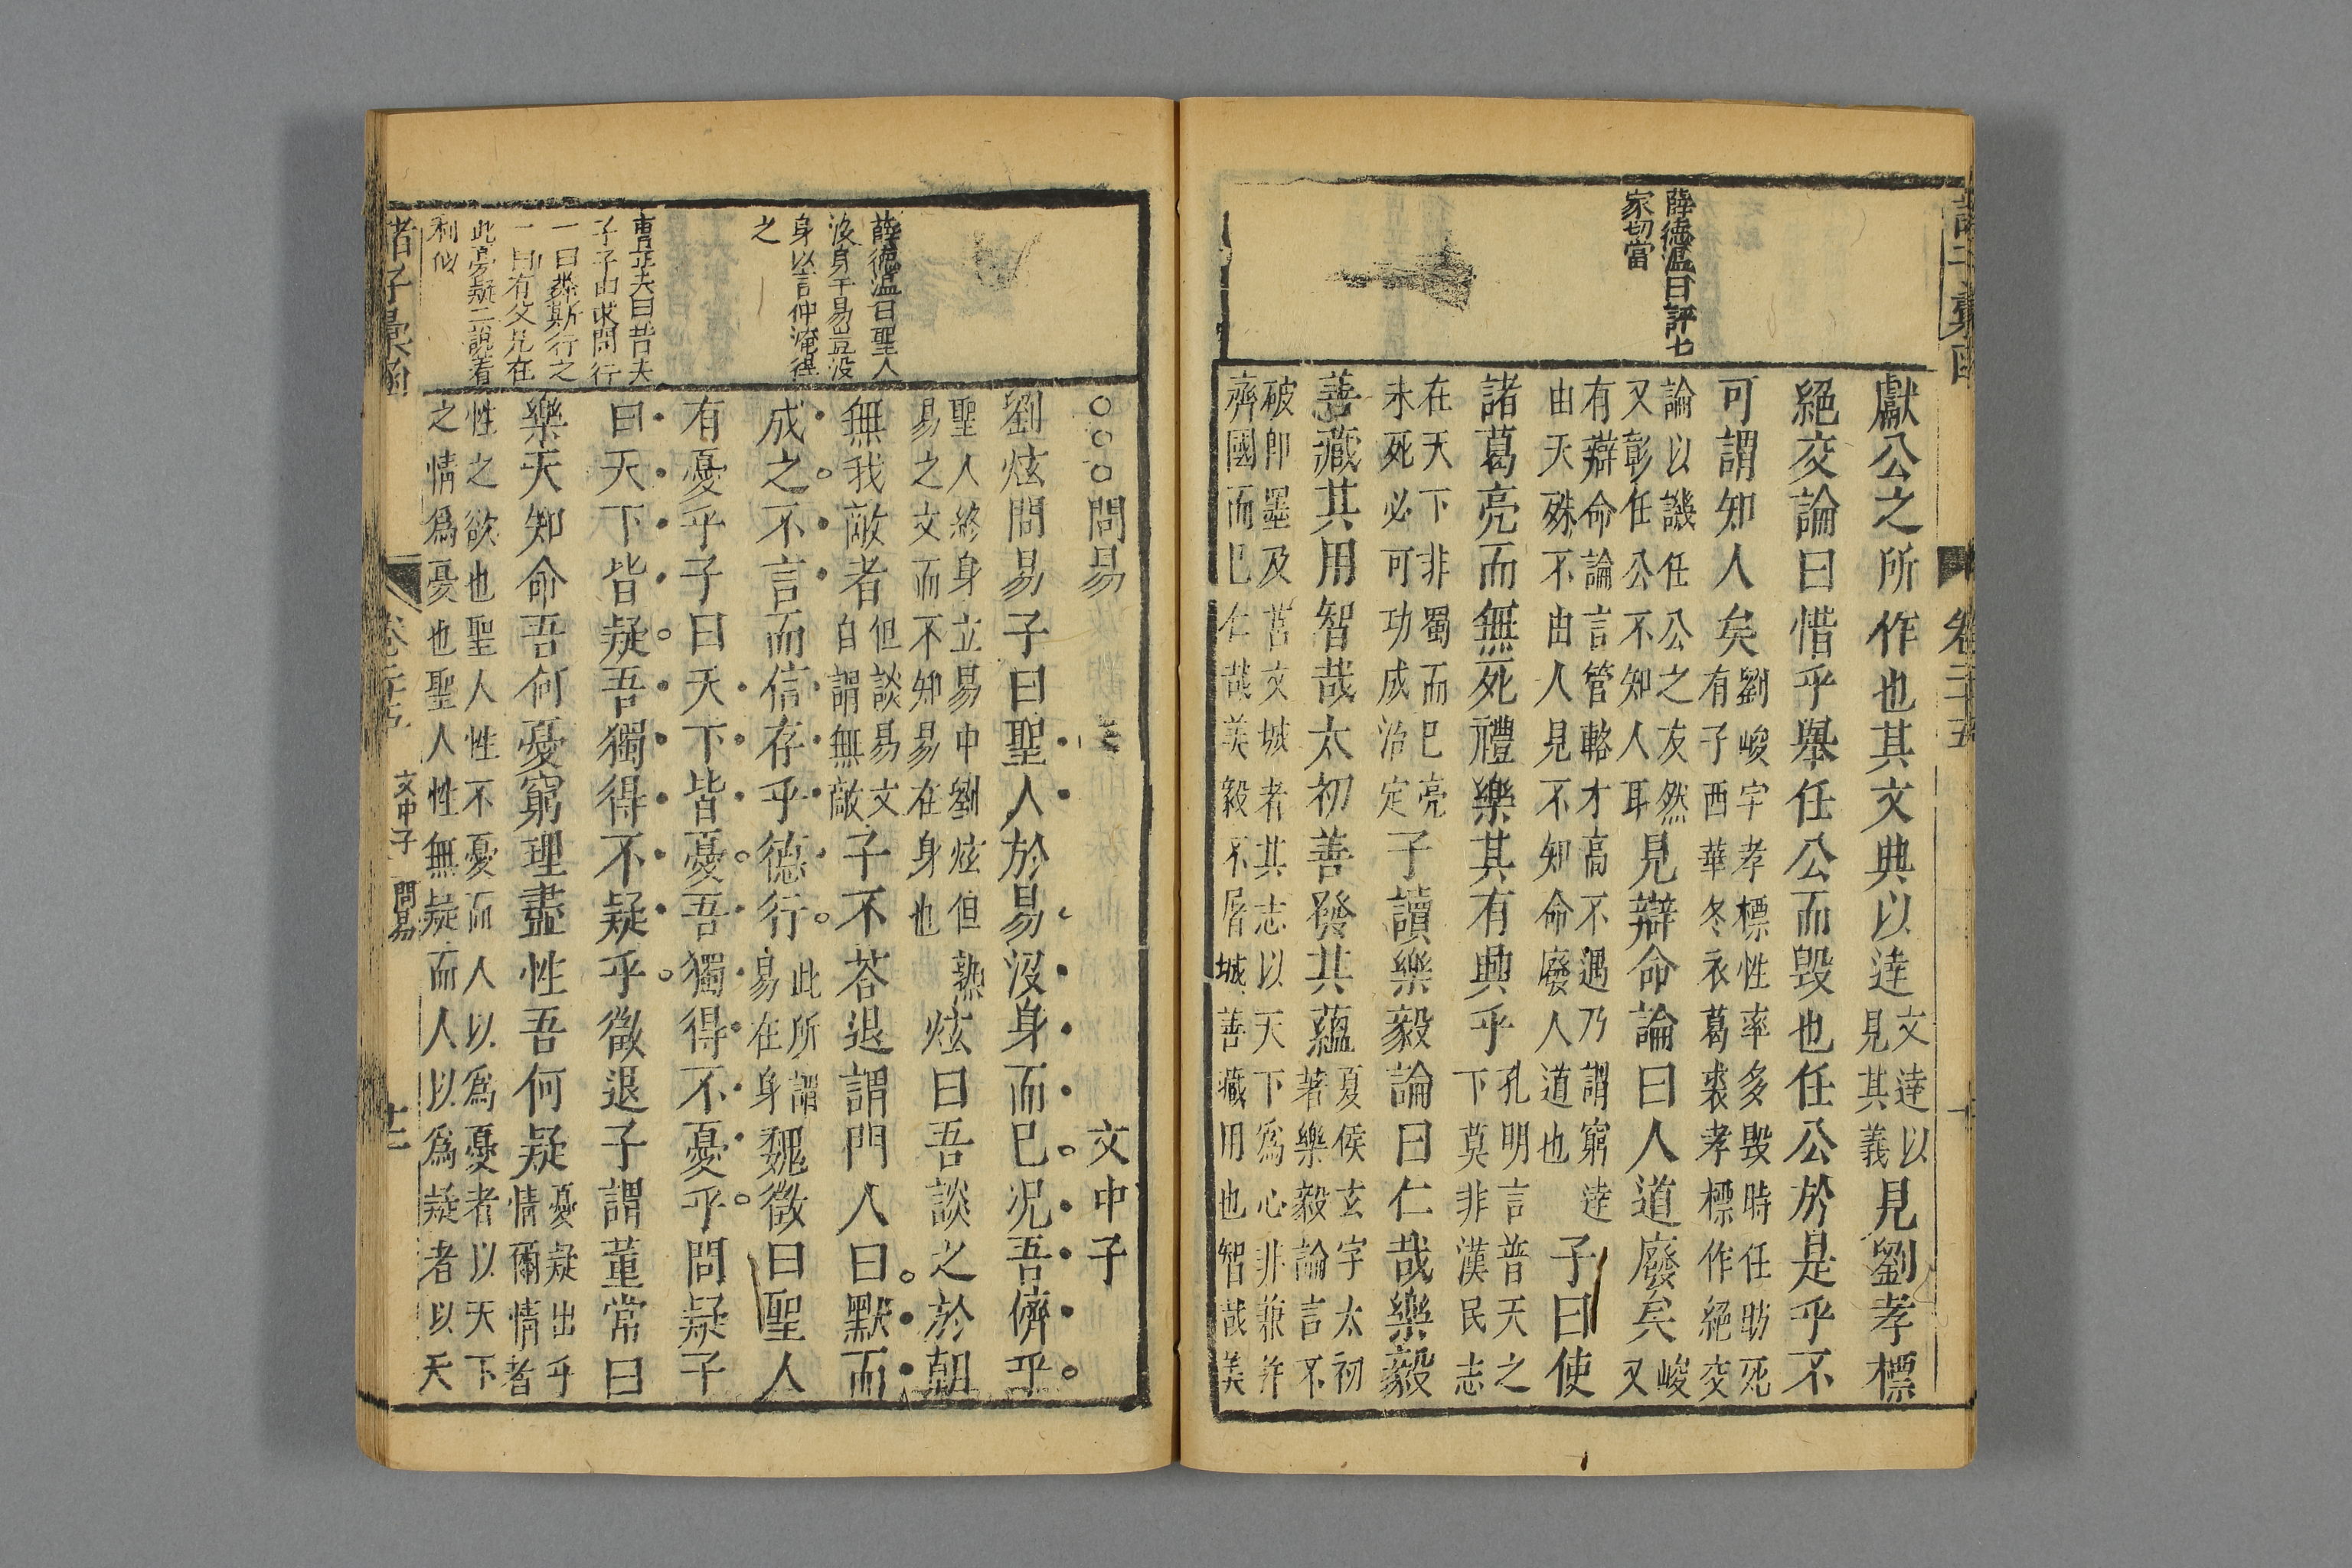 薛德溫曰評七
家切當
獻公之所作也其文典以達文達以見其義見劉孝標
絕交論曰惜乎舉任公而毀也任公於是乎不
可謂知人矣劉峻字孝標性率多毀時任昉死有子西華冬衣葛裘孝標作絕交
論以譏任公之友然又彰任公不知人耳見辯命論曰人道廢矣峻又
有辯命論言管輅才高不遇乃謂窮達由天殊不由人見不知命廢人道也子曰使
諸葛亮而無死禮樂其有興乎孔明言普天之下莫非漢民志
在天下非蜀而已亮未死必可功成治定子讀樂毅論曰仁哉樂毅
善藏其用智哉太初善發其蘊夏侯玄字太初著樂毅論言不
破即墨及莒交城者其志以天下為心非兼并齊國而已仁哉美毅不屠城善藏用也智哉美
卷二十五
薛德溫曰聖人
沒身于易豈没
身以言仲淹得
之
曹正夫曰昔夫
子子由求問行
一曰聞斯行之
一曰有父兄在
此旁疑二說着
利似
○○○問易 文中子
劉炫問易子曰聖人於易沒身而已況吾儕乎
聖人終身立易中劉炫但熟易之文而不知易在身也炫曰吾談之於朝
無我敵者但談易文自謂無敵子不荅退謂門人曰默而
成之不言而信存乎德行此所謂易在身魏徵曰聖人
有憂乎子曰天下皆憂吾獨得不憂乎問疑子
曰天下皆疑吾獨得不疑乎徵退子謂董常曰
樂天知命吾何憂窮理盡性吾何疑憂疑出乎情爾情者
性之欲也聖人性不憂而人以為憂者以天下之情為憂也聖人性無疑而人以為疑者以天
諸子彙函
卷二十五
文中子
問易
十二